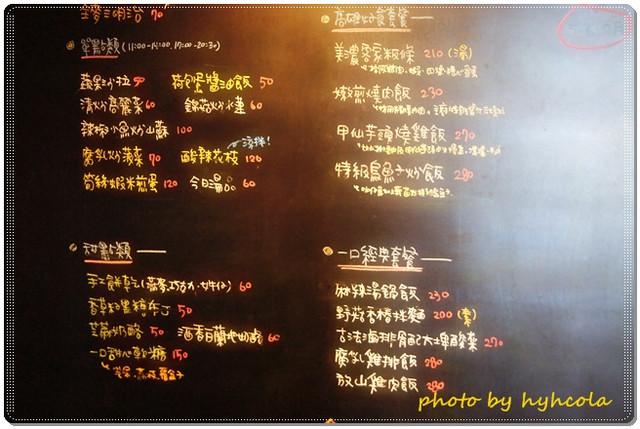 全麥三明治 70
單點類 (11:00~14:00, 17:00~20:30)
蔬果沙拉 50 荷包蛋醬油飯 50
清炒高麗菜 60 銀芽炒水蓮 60
辣椒小魚炒山蘇 100
涼拌!
腐乳炒菠菜 70 酸辣花枝 120
筍絲蝦米煎蛋 120 今日湯品 60
甜點類
手工餅乾 60
香草黑糖布丁 50
芝蔴奶酪 50 酒香白蘭地奶酪 60
一口甜心軟糖 150
高雄好食套餐
美濃客家粄條 210 (湯)
嫩煎燒肉飯 230
甲仙芋頭燒雞飯 270
特級烏魚子炒飯 280
一口經典套餐
麻辣湯鍋飯 230
野菜香椿拌麵 200 (素)
古法滷排骨配大埤酸菜 270
腐乳雞排飯 280
放山雞肉飯 280
photo by hyhcola